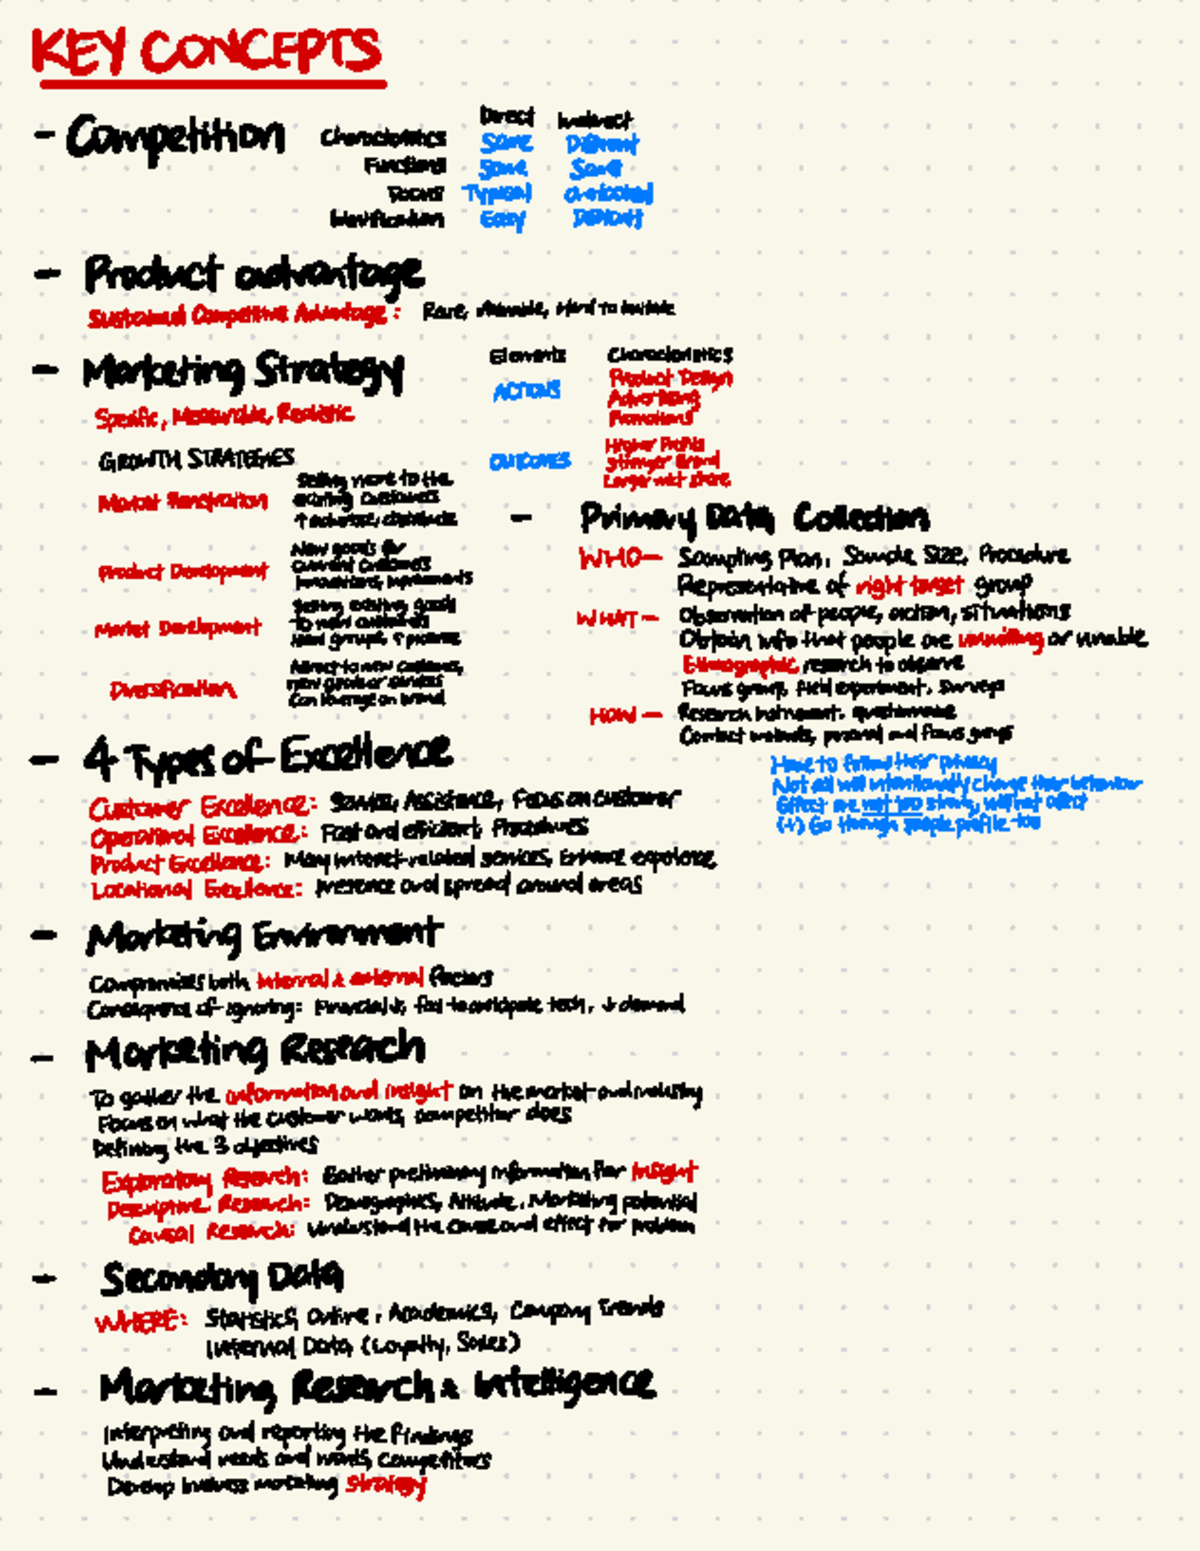 KEY CONCEPTS
- Competition
Direct Indirect
Characteristics Same Different
Functions Same Same
Focus Typical Overlooked
Identification Easy Difficult
- Product advantage
Sustained Competitive Advantage: Rare, valuable, Hard to imitate
- Marketing Strategy
Specific, Measurable, Realistic
Elements Characteristics
ACTIONS Product Design
Advertising
Promotions
OUTCOMES Higher Profits
Stronger Brand
Larger mkt share
GROWTH STRATEGIES
Market Penetration
Selling more to the
existing customers
Product Development
New goods for
current customers
Innovations, improvements
Market Development
Selling existing goods
to new customers
New groups, ↑
Diversification
Attract to new customers,
new goods or services
Can leverage on brand
- Primary Data Collection
WHO - Sampling Plan, Sample Size, Procedure
Representative of right target group
WHAT - Observation of people, action, situations
Obtain info that people are unwilling or unable
Ethnographic research to observe
Focus group, field experiment, surveys
HOW - Research instrument, questionnaire
Contact methods, personal and focus groups
Have to follow their privacy
Not all will intentionally change their behaviour
Effect are not too strong, will not affect
(+) Go through people profile too
- 4 Types of Excellence
Customer Excellence: Service, Assistance, Focus on customer
Operational Excellence: Fast and efficient, Procedures
Product Excellence: Many internet-related services, Enhance experience
Locational Excellence: Presence and spread around areas
- Marketing Environment
Compromises both internal & external factors
Consequences of ignoring: Financial ↓, fail to anticipate tech, ↓ demand
- Marketing Reseach
To gather the information and insight on the market and industry
Focus on what the customer wants, competitor does
Defining the 3 objectives
Exploratory Research: Gather preliminary information for Insight
Descriptive Research: Demographics, Attitude, Marketing potential
Causal Research: Understand the cause and effect for problem
- Secondary Data
WHERE: Statistics, Online, Academics, Company Trends
Internal Data (Loyalty, Sales)
- Marketing Research & Intelligence
Interpreting and reporting the findings
Understand needs and wants, Competitors
Develop business marketing Strategy